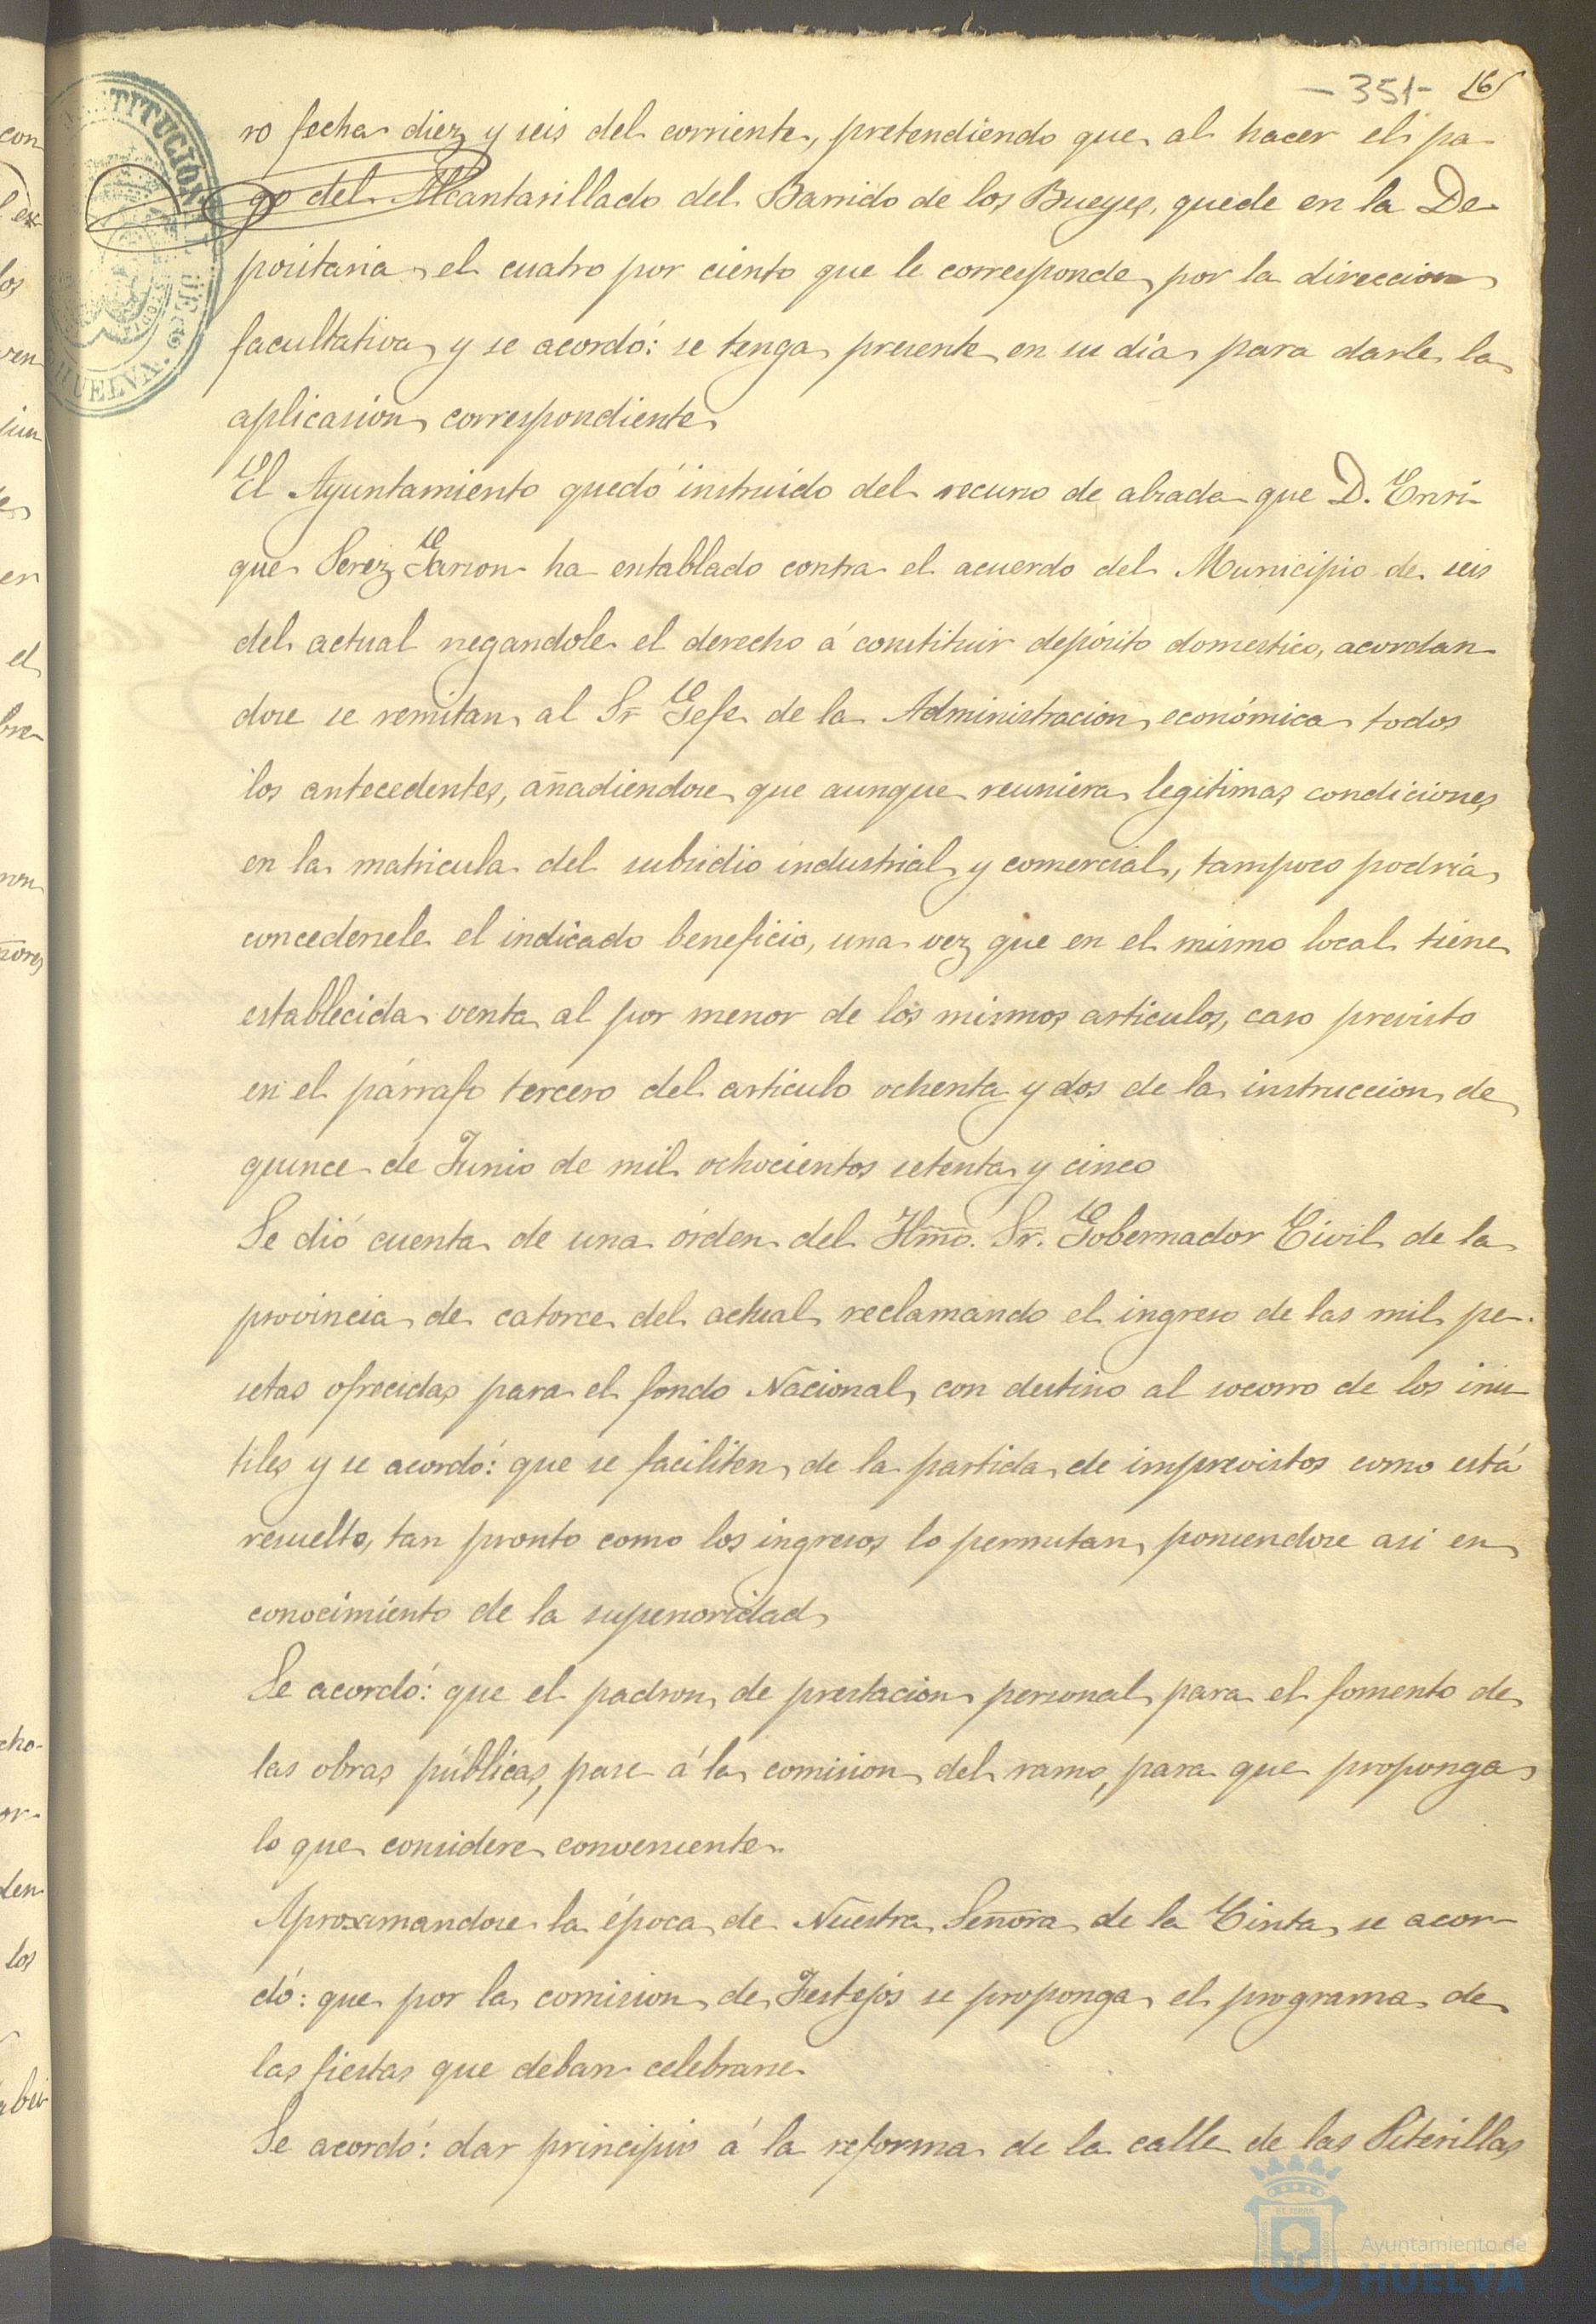 -351- 16
ro fecha diez y seis del corriente, pretendiendo que al hacer el pa-
go del Alcantarillado del Barrido de los Bueyes, quede en la De-
positaria el cuatro por ciento que le corresponde por la direccion
facultativa y se acordó: se tenga presente en su día para darle la
aplicasion correspondiente
El Ayuntamiento quedó instruido del recurso de alzada que D. Enri-
que Perez Garzon ha entablado contra el acuerdo del Municipio de seis
del actual negandole el derecho á constituir depósito domestico, acordan-
dose se remitan al Sr Gefe de la Administracion económica todos
los antecedentes, añadiendose que aunque reuniera legitimas condiciones
en la matricula del subsidio industrial y comercial, tampoco podria
concedersele el indicado beneficio, una vez que en el mismo local tiene
establecida venta al por menor de los mismos articulos, caso previsto
en el párrafo tercero del articulo ochenta y dos de la instruccion de
quince de Junio de mil ochocientos setenta y cinco
Se dió cuenta de una órden del Ilmo. Sr. Gobernador Civil de la
provincia de catorce del actual reclamando el ingreso de las mil pe-
setas ofrecidas para el fondo Nacional con destino al socorro de los inu-
tiles y se acordó: que se faciliten de la partida de imprevistos como está
resuelto, tan pronto como los ingresos lo permitan, poniendose asi en
conocimiento de la superioridad
Se acordó: que el padron de prestacion personal para el fomento de
las obras públicas, pase á la comision del ramo, para que proponga
lo que considere conveniente.
Aproximandose la época de Nuestra Señora de la Cinta, se acor-
dó: que por la comision de Festejos se proponga el programa de
las fiestas que deban celebrarse
Se acordó: dar principio á la reforma de la calle de las Piterillas
HUELVA
Ayuntamiento de
HUELVA